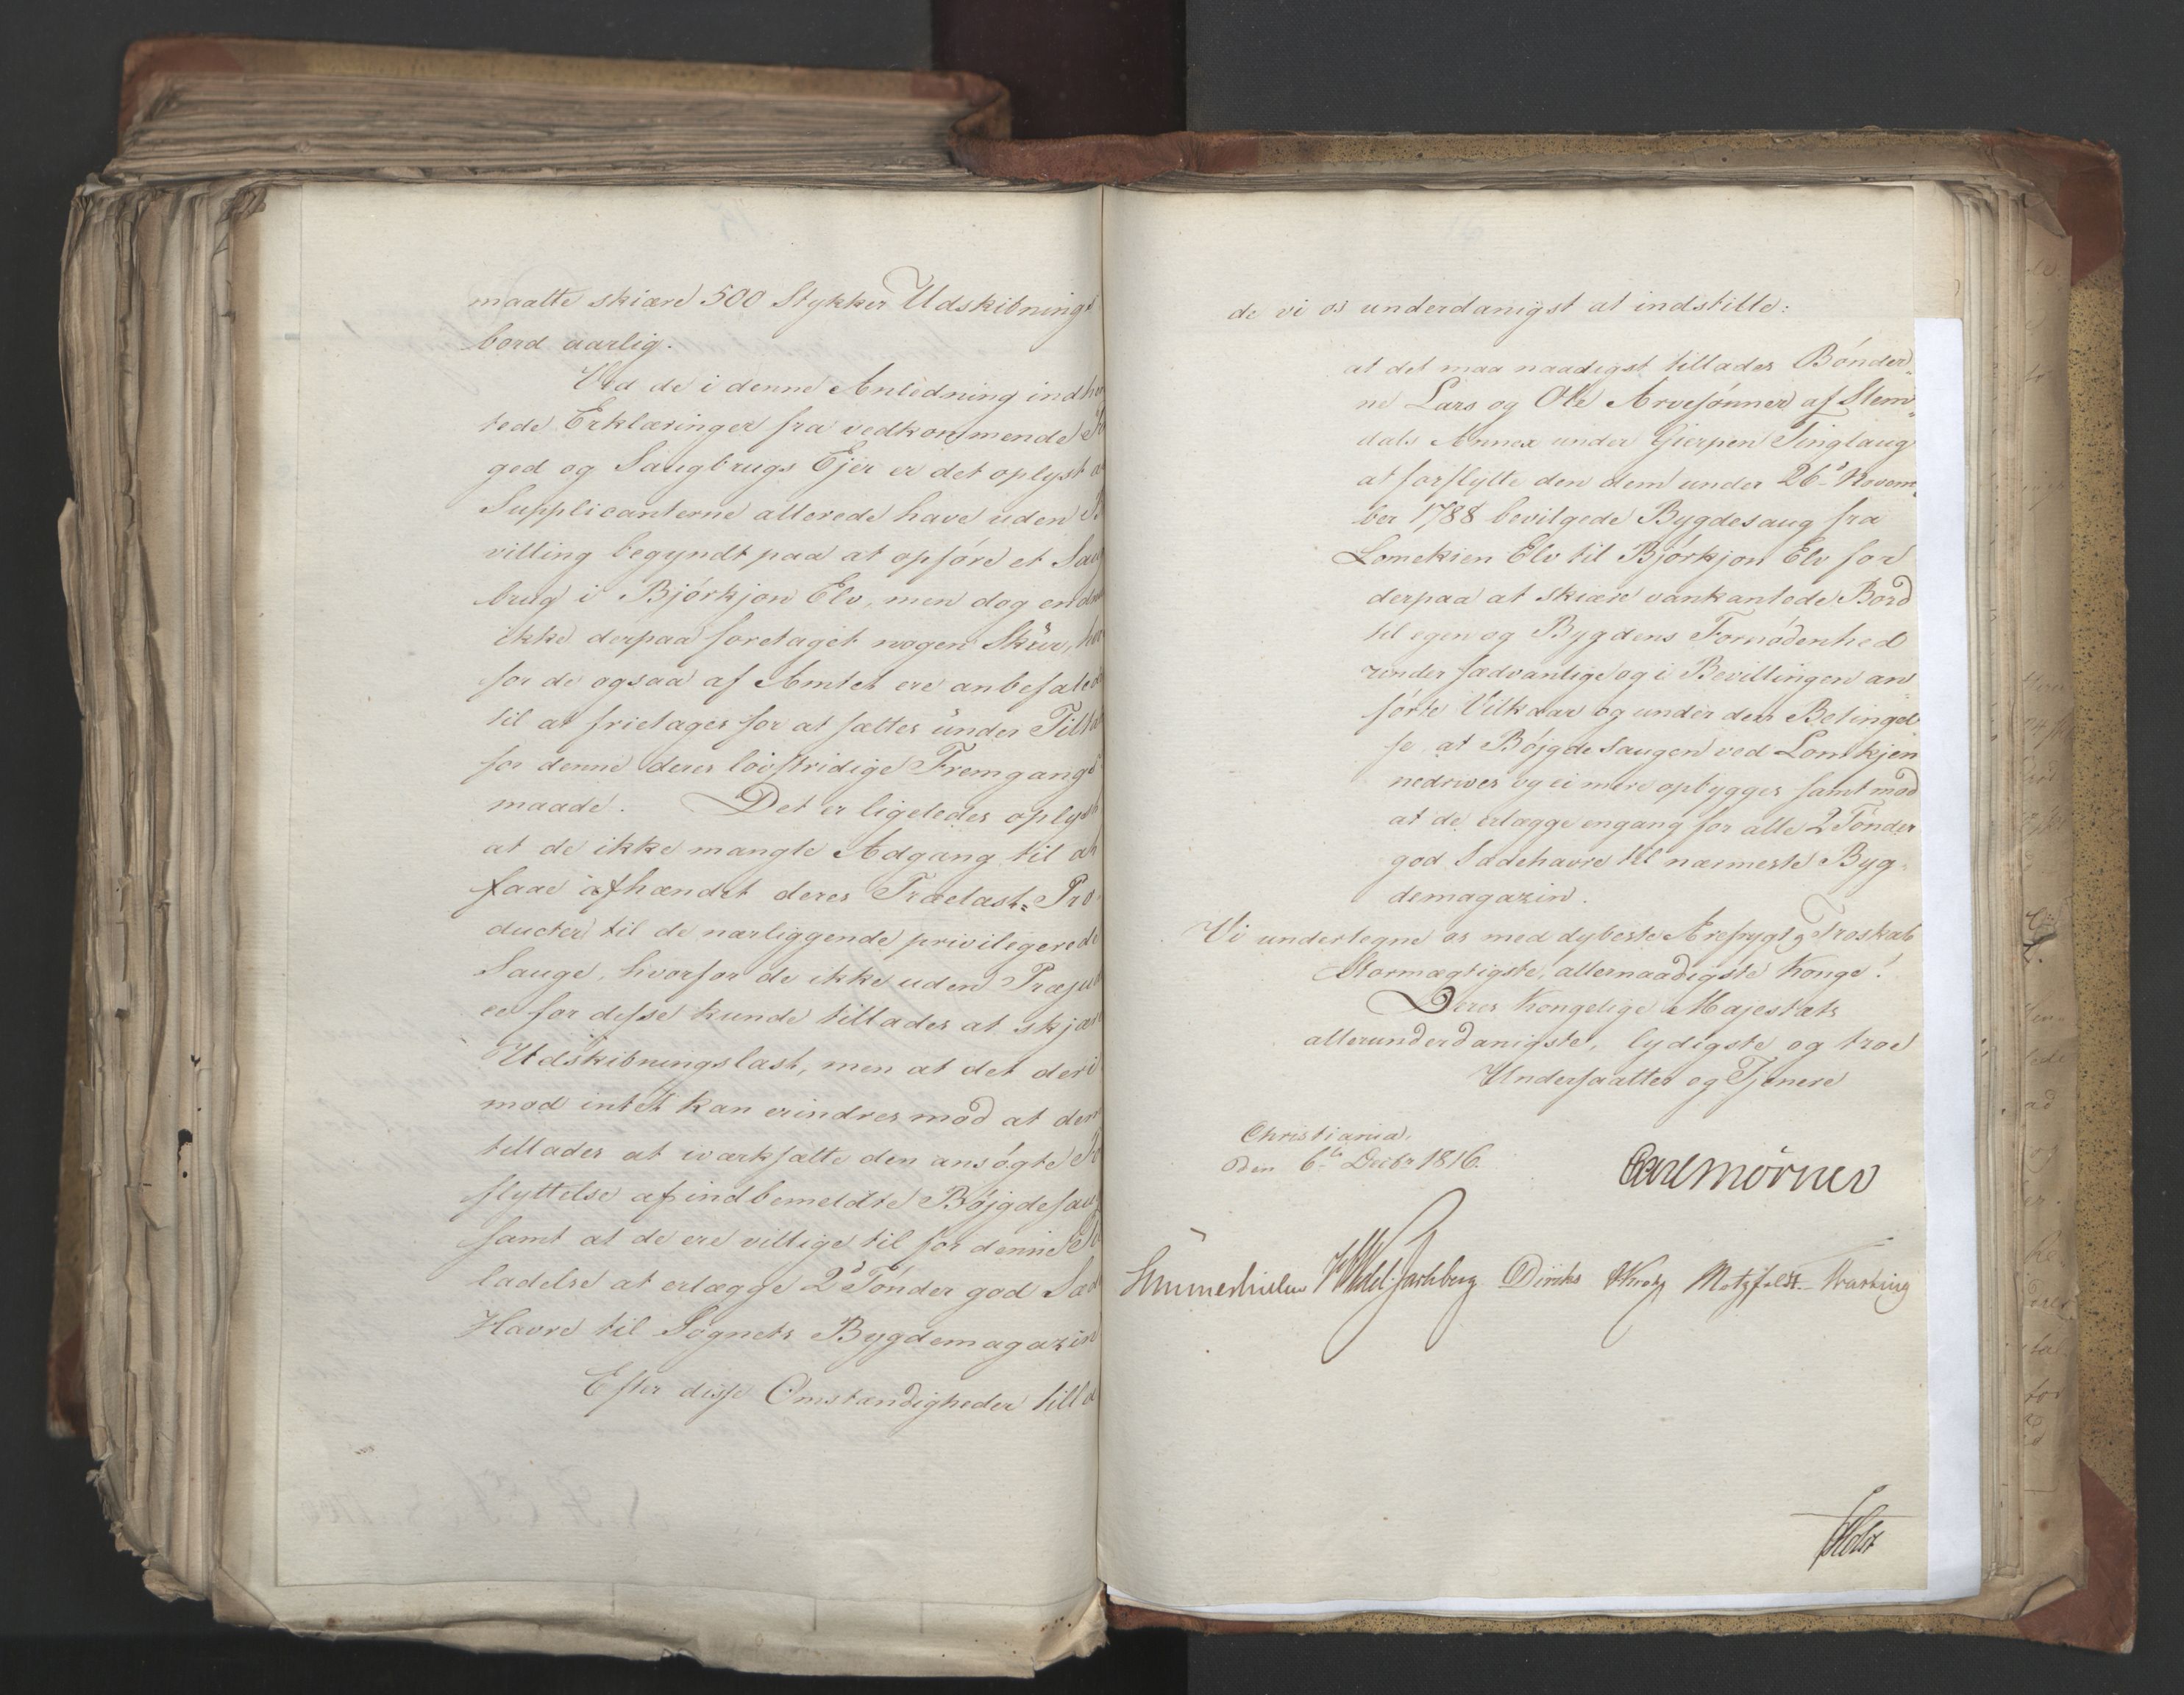 maatte skiære 500 Stykker Udskibnings
bord aarlig.
Ved de i denne Anledning indhen
tede Erklæringer fra vedkommende
ged og Saugbrugs Ejer er det oplyst at
Supplicanterne allerede have uden Be
villing begyndt paa at opføre et Saug
brug i Bjørkjon Elv, men dog endnu
ikke derpaa foretaget nogen Skuur, hvor
for de ogsaa af Amtet ere anbefalede
til at frietages for at sættes under Tiltale
for denne deres lovstridige Fremgangs
maade. Det er ligeledes oplyst
at de ikke mangle Adgang til at
faae afhændet deres Trælast-Pro
ducter til de nærliggende privilegerede
Sauge, hvorfor de ikke uden Præjudi
ce for disse kunde tillades at skjære
Udskibningslast, men at det deri
mod intet kan erindres mod at dem
tillades at iværksætte den ansøgte
flyttelse af indbemeldte Bøjgdesaug
samt at de ere villige til for denne
ladelse at erlægge 2 Tønder god Sæd
Havre til Sognets Bygdemagazin
Efter disse Omstændigheder tilla
de vi os underdanigst at indstille:
at det maa naadigst tillades Bønder-
ne Lars og Ole Arvesønner af Slem-
dals Annex under Gierpen Tinglaug
at forflytte den dem under 26 Novem-
ber 1788 bevilgede Bygdesaug fra
Lomekien Elv til Bjørkjon Elv for
derpaa at skiære vankantede Bord
til egen og Bygdens Fornødenhed
under sædvanlige og i Bevillingen an
førte Vilkaar og under den Betingel
se, at Bøjgdesaugen ved Lomkjen
nedrives og ei mere opbygges samt mod
at de erlægge engang for alle 2 Tønder
god Sædehavre til nærmeste Byg-
demagazin.
Vi undertegne os med dybeste Ærefrygt og Troskab
Stormægtigste, allernaadigste Konge!
Deres Kongelige Majestæts
allerunderdanigste, lydigste og troe
Undersaatter og Tjenere
Christiania
den 6te Decbr 1816.
Carl Mörner
Sommerhielm Wedel Jarlsberg Diriks Krog Motzfeldt
Holst